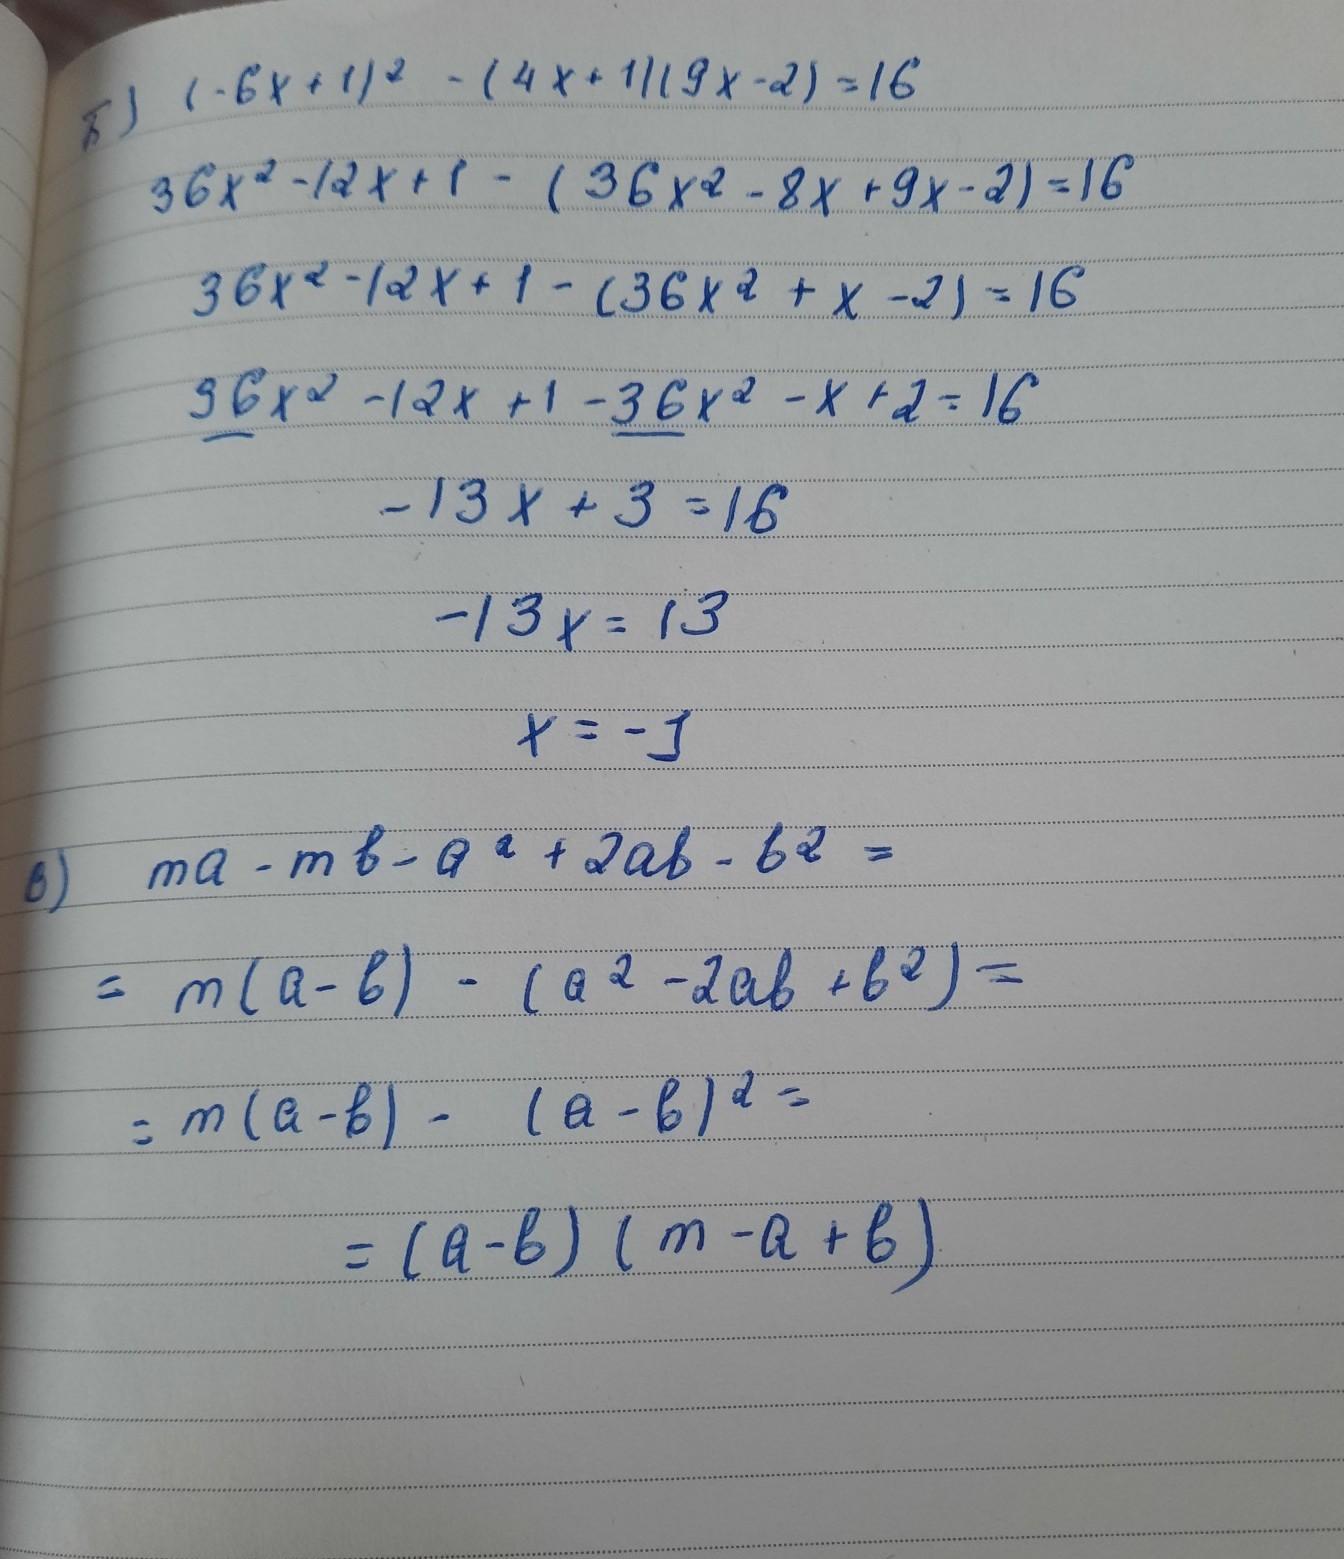 б) (-6x+1)² - (4x+1)(9x-2)=16
36x²-12x+1 - (36x²-8x+9x-2)=16
36x²-12x+1-(36x²+x-2)=16
36x²-12x+1-36x²-x+2=16
-13x+3=16
-13x=13
x=-1
в) ma-mb-a²+2ab-b²=
= m(a-b) - (a²-2ab+b²)=
= m(a-b) - (a-b)²=
=(a-b)(m-a+b)